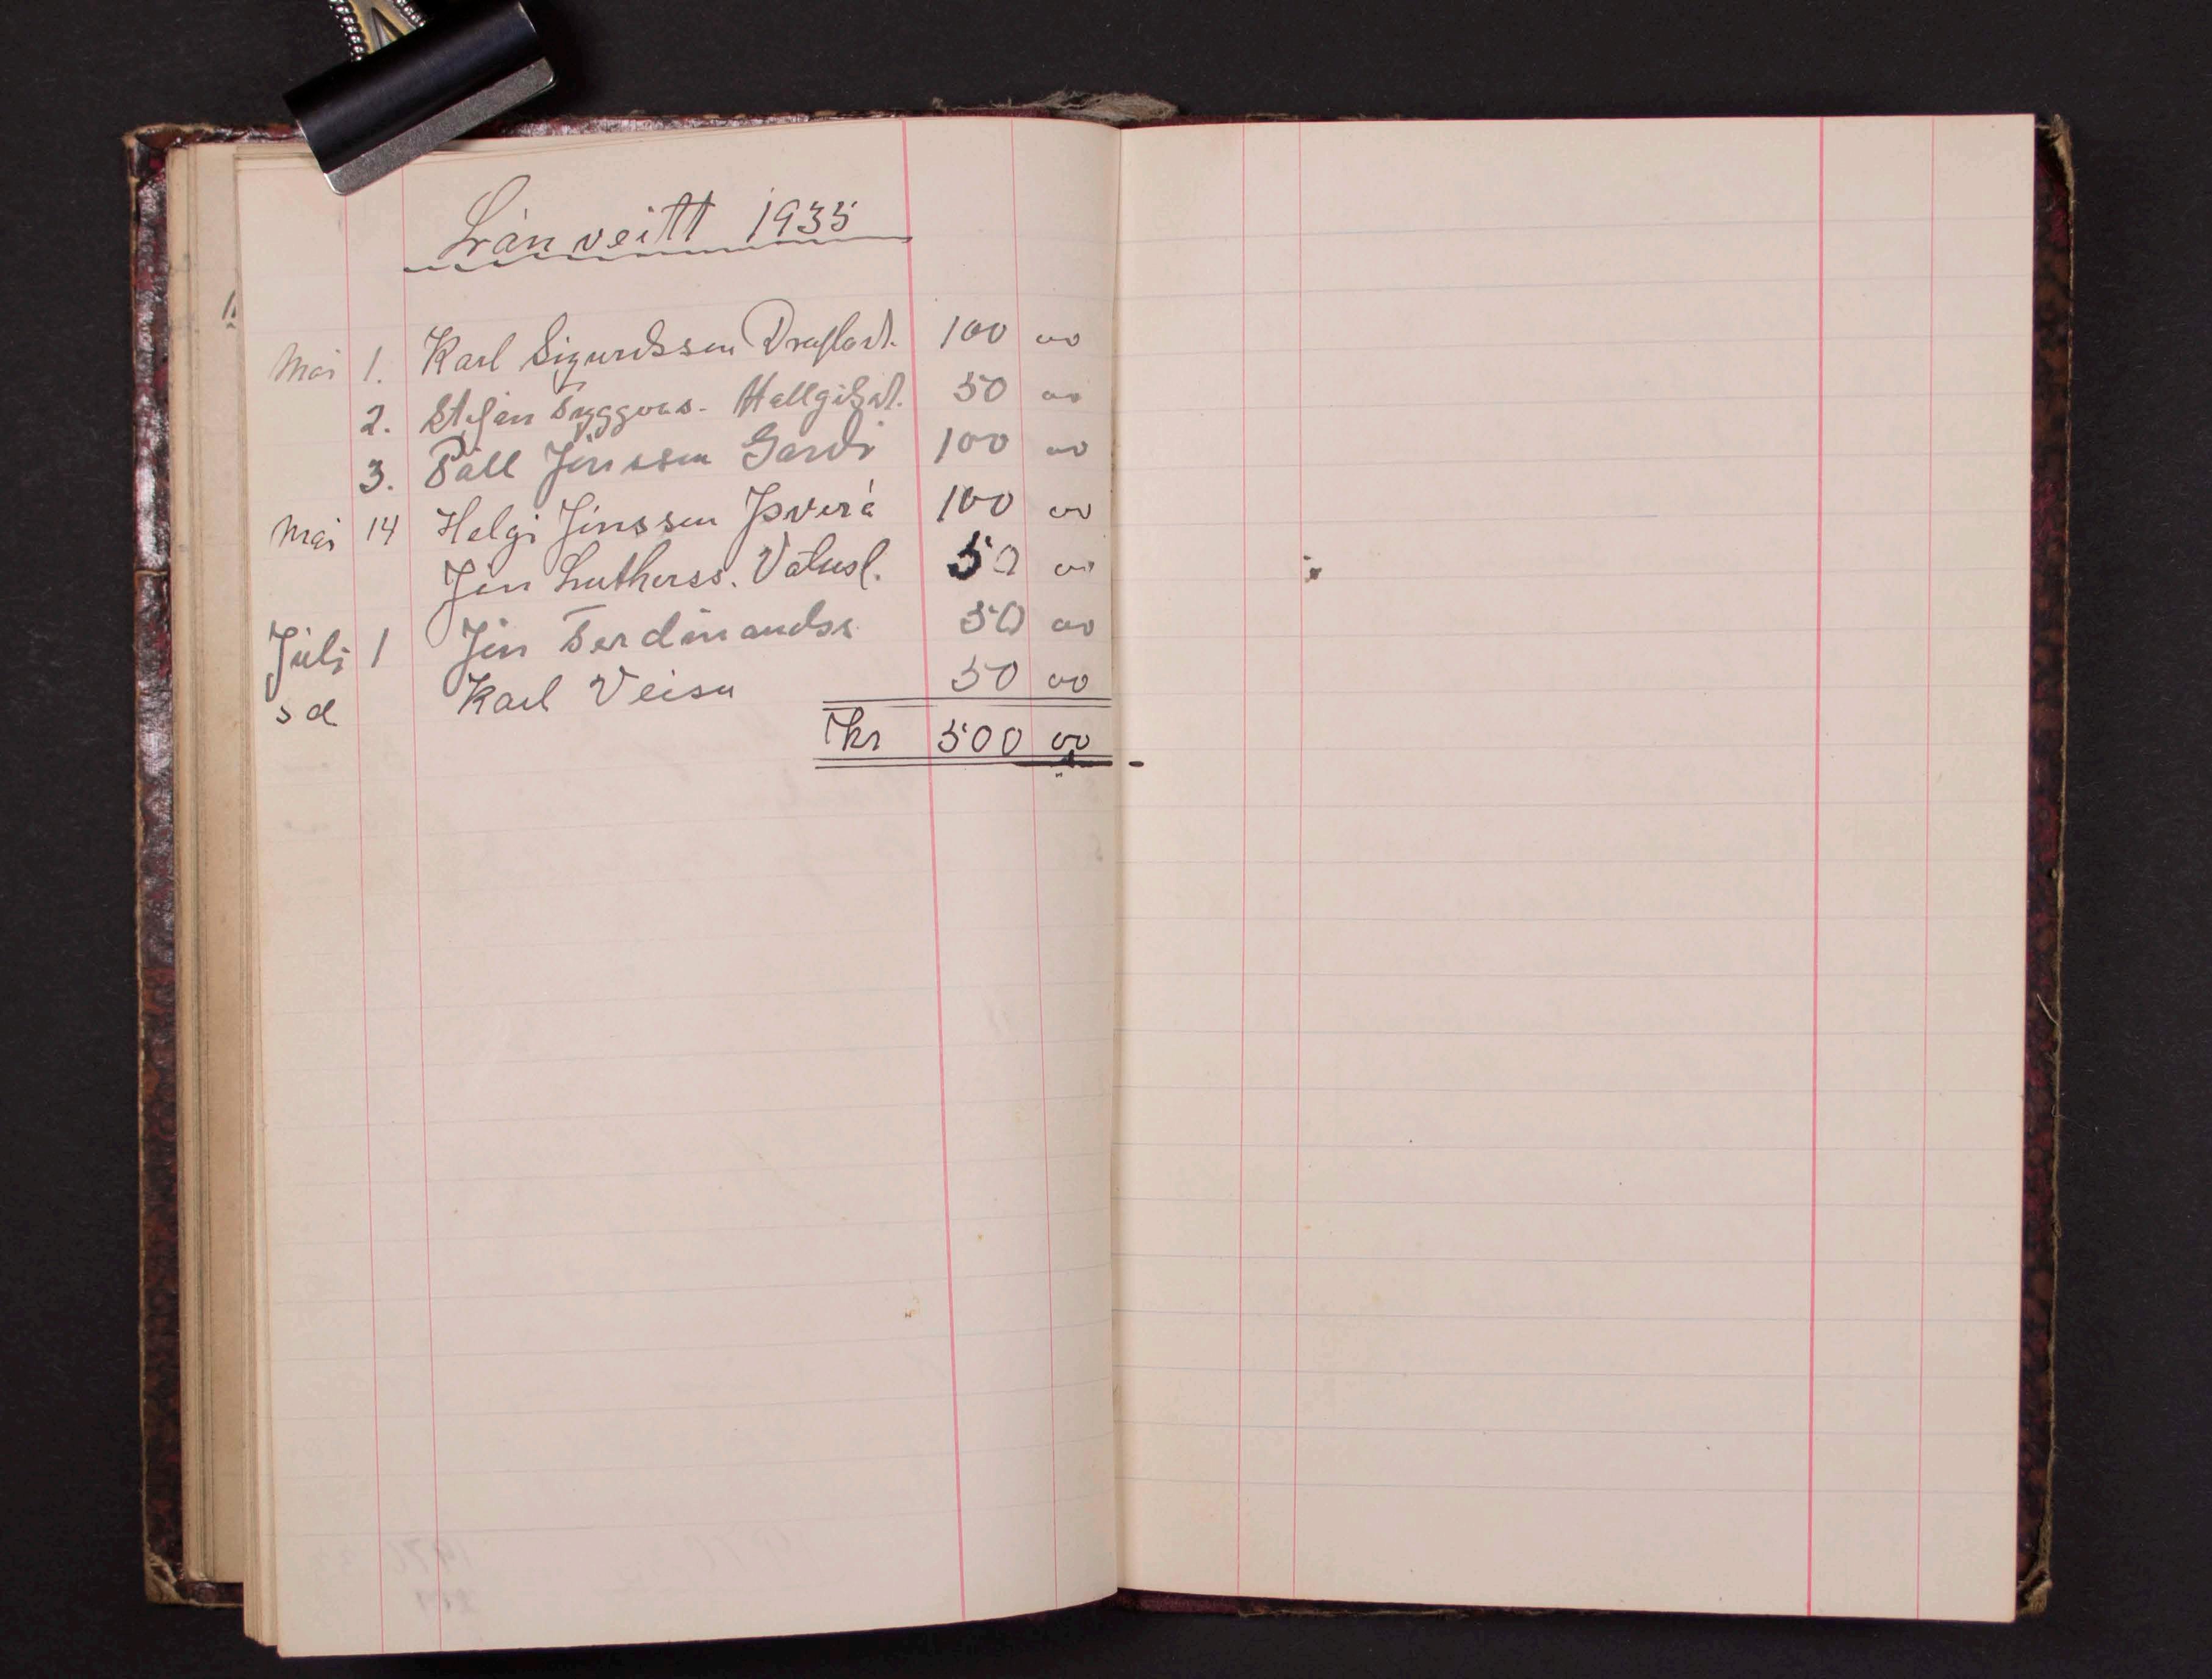 Lán veitt 1935
Mai 1. Karl Sigurdsson Draflast. 100 00
2. Stefán Tryggvas. Hallgilsst. 50 00
3. Páll Jónsson Gardi 100 00
Mai 14 Helgi Jónsson Þverá 100 00
Jón Lutherss. Vatnsl. 50 00
Júli 1 Jón Ferdinandss 50 00
s d Karl Veisu 50 00
Kr 500 00